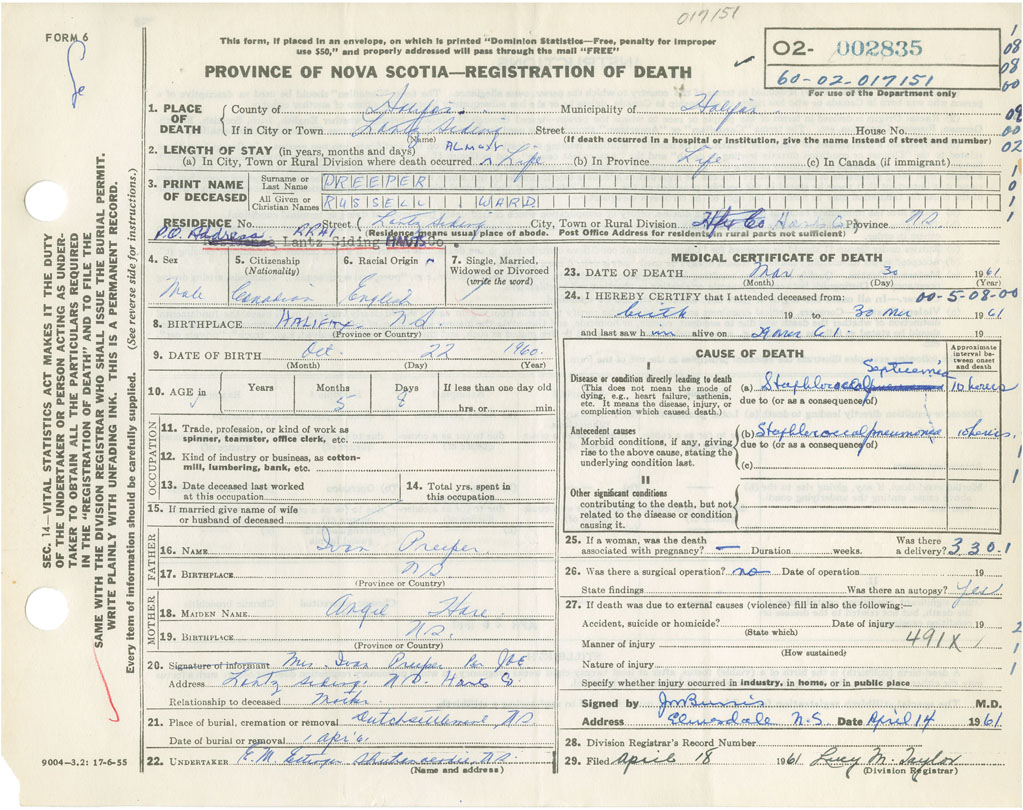 017151
FORM 6
This form, if placed in an envelope, on which is printed "Dominion Statistics—Free, penalty for improper
use $50," and properly addressed will pass through the mail "FREE"
PROVINCE OF NOVA SCOTIA—REGISTRATION OF DEATH
02- 002835
60-02-017151
For use of the Department only
SEC. 14—VITAL STATISTICS ACT MAKES IT THE DUTY
OF THE UNDERTAKER OR PERSON ACTING AS UNDER-
TAKER TO OBTAIN ALL THE PARTICULARS REQUIRED
IN THE "REGISTRATION OF DEATH" AND TO FILE THE
SAME WITH THE DIVISION REGISTRAR WHO SHALL ISSUE THE BURIAL PERMIT.
WRITE PLAINLY WITH UNFADING INK. THIS IS A PERMANENT RECORD.
Every item of information should be carefully supplied. (See reverse side for instructions.)
1. PLACE OF DEATH
County of Halifax Municipality of Halifax
If in City or Town Lantz Siding Street House No.
(Name) (If death occurred in a hospital or institution, give the name instead of street and number)
2. LENGTH OF STAY (in years, months and days) ALMOST
(a) In City, Town or Rural Division where death occurred Life (b) In Province Life (c) In Canada (if immigrant)
3. PRINT NAME OF DECEASED
Surname or Last Name PREEPER
All Given or Christian Names RUSSELL WARD
RESIDENCE No. Street Lantz Siding City, Town or Rural Division Hfx Co Hants Co Province NS
P.O. Address RR#1 (Residence means usual place of abode. Post Office Address for residents in rural parts not sufficient)
Lantz Siding HANTS Co.
4. Sex Male
5. Citizenship (Nationality) Canadian
6. Racial Origin English
7. Single, Married, Widowed or Divorced (write the word)
8. BIRTHPLACE HALIFAX NS
(Province or Country)
9. DATE OF BIRTH Oct. 22 1960
(Month) (Day) (Year)
10. AGE in Years Months 5 Days 8 If less than one day old hrs. or min.
OCCUPATION
11. Trade, profession, or kind of work as spinner, teamster, office clerk, etc.
12. Kind of industry or business, as cotton-mill, lumbering, bank, etc.
13. Date deceased last worked at this occupation
14. Total yrs. spent in this occupation
15. If married give name of wife or husband of deceased
FATHER
16. NAME Ivan Preeper
17. BIRTHPLACE NS
(Province or Country)
MOTHER
18. MAIDEN NAME Angie Hare
19. BIRTHPLACE NS.
(Province or Country)
20. Signature of informant Mrs. Ivan Preeper Per
Address Lantz Siding, Hants Co.
Relationship to deceased Mother
21. Place of burial, cremation or removal Dutch settlement NS
Date of burial or removal 1 Apr 61
22. UNDERTAKER E.M. NS
(Name and address)
9004—3.2: 17-6-55
MEDICAL CERTIFICATE OF DEATH
23. DATE OF DEATH Mar 30 1961
(Month) (Day) (Year)
00-5-08-00
24. I HEREBY CERTIFY that I attended deceased from:
birth 19 to 30 Mar 1961
and last saw him alive on 19
CAUSE OF DEATH
Approximate interval between onset and death
I
Disease or condition directly leading to death
(This does not mean the mode of dying, e.g., heart failure, asthenia, etc. It means the disease, injury, or complication which caused death.)
(a) Staphlococcal Septicemia 10 hours
due to (or as a consequence of)
Antecedent causes
Morbid conditions, if any, giving rise to the above cause, stating the underlying condition last.
(b) Staphlococcal pneumonia 10 hours
due to (or as a consequence of)
(c)
II
Other significant conditions
contributing to the death, but not related to the disease or condition causing it.
25. If a woman, was the death associated with pregnancy? — Duration weeks. Was there a delivery? 3301
26. Was there a surgical operation? no Date of operation 19
State findings Was there an autopsy? Yes
27. If death was due to external causes (violence) fill in also the following:—
Accident, suicide or homicide? Date of injury 19
(State which)
Manner of injury 491X
(How sustained)
Nature of injury
Specify whether injury occurred in industry, in home, or in public place
Signed by M.D.
Address Elmsdale N.S. Date April 14 1961
28. Division Registrar's Record Number
29. Filed April 18 1961 Lucy M. Taylor
(Division Registrar)